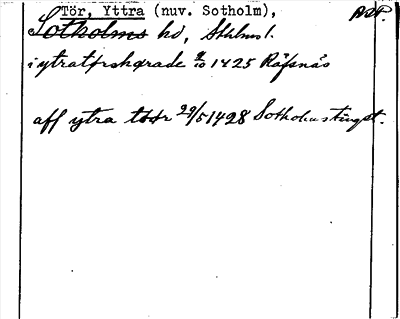 Tör, Yttra (nuv. Sotholm),
Sotholms hd, Sthlms l.
i ytratørahærade 9/10 1425 Räfsnäs
aff ytra thør 29/5 1428 Sotholms tingst.